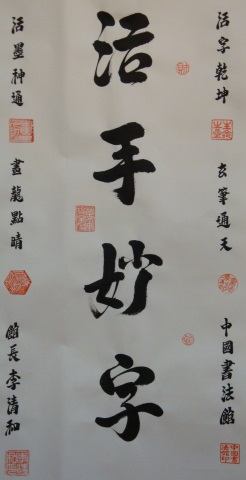 活字乾坤
玄筆通天
中國書法館
活手妙字
活墨神通
畫龍點睛
館長李清和